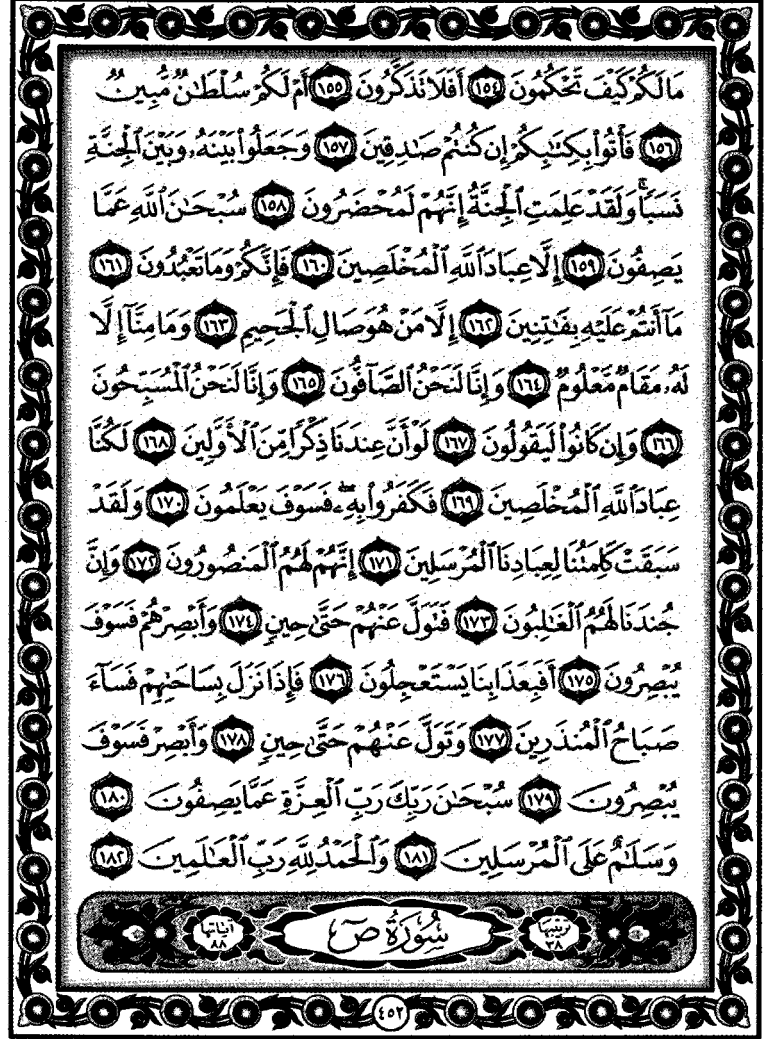 مَا لَكُمْ كَيْفَ تَحْكُمُونَ ١٥٤ أَفَلَا تَذَكَّرُونَ ١٥٥ أَمْ لَكُمْ سُلْطَـٰنٌ مُّبِينٌ
١٥٦ فَأْتُوا۟ بِكِتَـٰبِكُمْ إِن كُنتُمْ صَـٰدِقِينَ ١٥٧ وَجَعَلُوا۟ بَيْنَهُۥ وَبَيْنَ ٱلْجِنَّةِ
نَسَبًا ۚ وَلَقَدْ عَلِمَتِ ٱلْجِنَّةُ إِنَّهُمْ لَمُحْضَرُونَ ١٥٨ سُبْحَـٰنَ ٱللَّهِ عَمَّا
يَصِفُونَ ١٥٩ إِلَّا عِبَادَ ٱللَّهِ ٱلْمُخْلَصِينَ ١٦٠ فَإِنَّكُمْ وَمَا تَعْبُدُونَ ١٦١
مَآ أَنتُمْ عَلَيْهِ بِفَـٰتِنِينَ ١٦٢ إِلَّا مَنْ هُوَ صَالِ ٱلْجَحِيمِ ١٦٣ وَمَا مِنَّآ إِلَّا
لَهُۥ مَقَامٌ مَّعْلُومٌ ١٦٤ وَإِنَّا لَنَحْنُ ٱلصَّآفُّونَ ١٦٥ وَإِنَّا لَنَحْنُ ٱلْمُسَبِّحُونَ
١٦٦ وَإِن كَانُوا۟ لَيَقُولُونَ ١٦٧ لَوْ أَنَّ عِندَنَا ذِكْرًا مِّنَ ٱلْأَوَّلِينَ ١٦٨ لَكُنَّا
عِبَادَ ٱللَّهِ ٱلْمُخْلَصِينَ ١٦٩ فَكَفَرُوا۟ بِهِۦ ۖ فَسَوْفَ يَعْلَمُونَ ١٧٠ وَلَقَدْ
سَبَقَتْ كَلِمَتُنَا لِعِبَادِنَا ٱلْمُرْسَلِينَ ١٧١ إِنَّهُمْ لَهُمُ ٱلْمَنصُورُونَ ١٧٢ وَإِنَّ
جُندَنَا لَهُمُ ٱلْغَـٰلِبُونَ ١٧٣ فَتَوَلَّ عَنْهُمْ حَتَّىٰ حِينٍ ١٧٤ وَأَبْصِرْهُمْ فَسَوْفَ
يُبْصِرُونَ ١٧٥ أَفَبِعَذَابِنَا يَسْتَعْجِلُونَ ١٧٦ فَإِذَا نَزَلَ بِسَاحَتِهِمْ فَسَآءَ
صَبَاحُ ٱلْمُنذَرِينَ ١٧٧ وَتَوَلَّ عَنْهُمْ حَتَّىٰ حِينٍ ١٧٨ وَأَبْصِرْ فَسَوْفَ
يُبْصِرُونَ ١٧٩ سُبْحَـٰنَ رَبِّكَ رَبِّ ٱلْعِزَّةِ عَمَّا يَصِفُونَ ١٨٠
وَسَلَـٰمٌ عَلَى ٱلْمُرْسَلِينَ ١٨١ وَٱلْحَمْدُ لِلَّهِ رَبِّ ٱلْعَـٰلَمِينَ ١٨٢
ترتيبها ٣٨ سُورَةُ صٓ آياتها ٨٨
٤٥٢